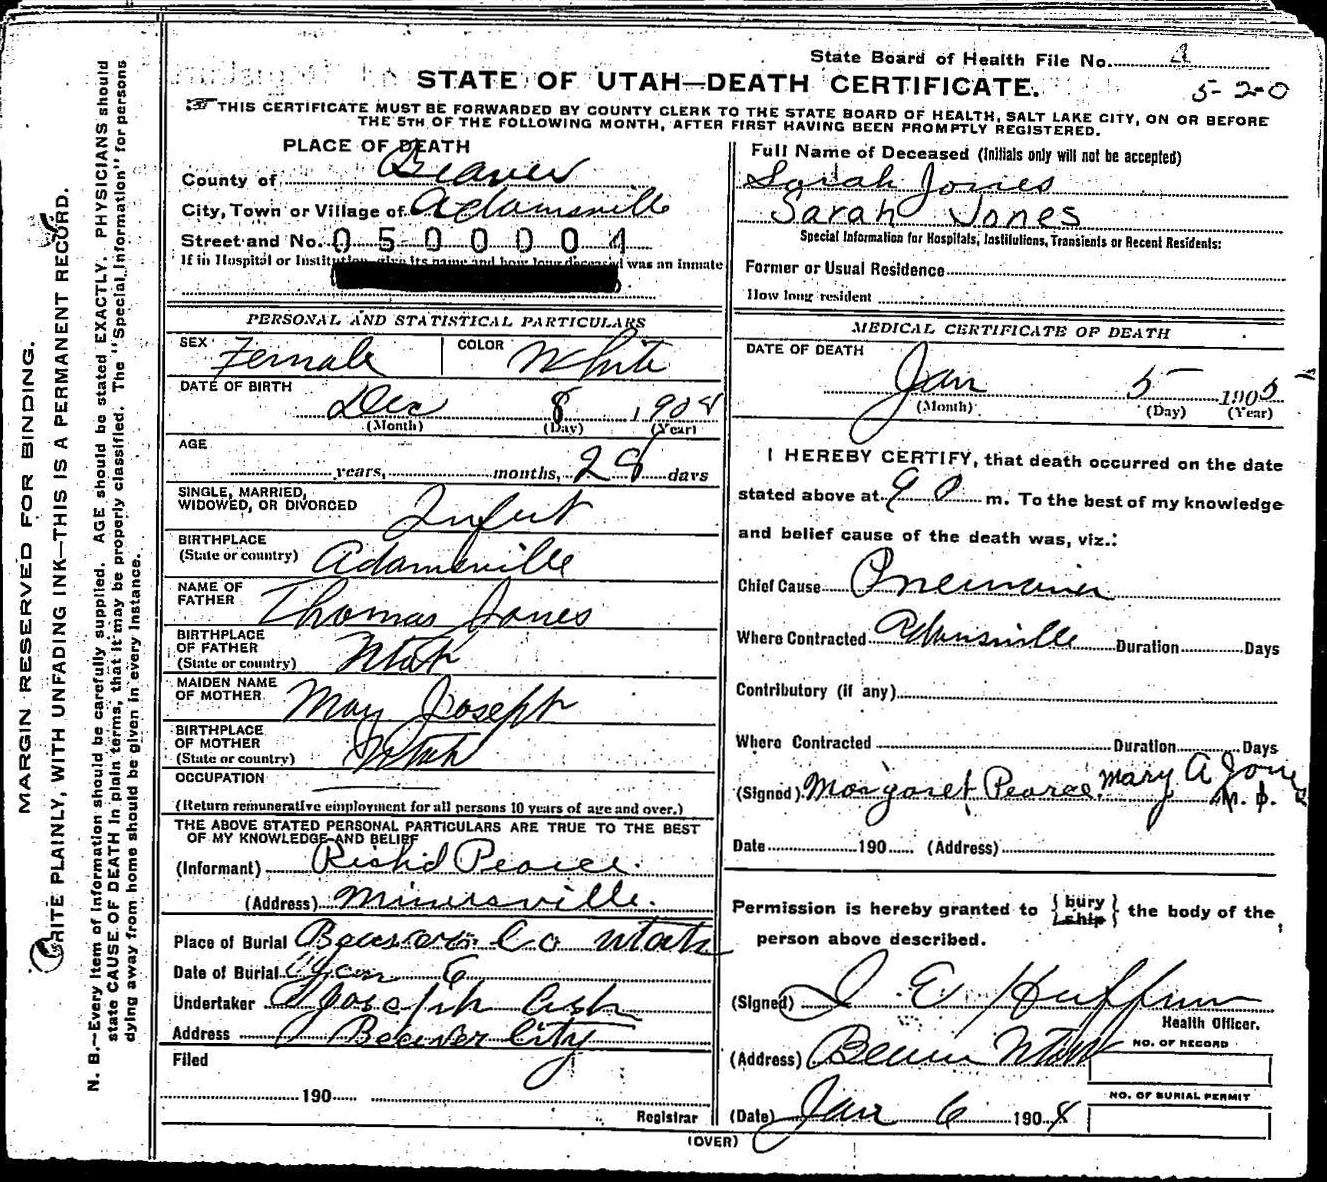 State Board of Health File No.
STATE OF UTAH—DEATH CERTIFICATE.
5-20
THIS CERTIFICATE MUST BE FORWARDED BY COUNTY CLERK TO THE STATE BOARD OF HEALTH, SALT LAKE CITY, ON OR BEFORE
THE 5TH OF THE FOLLOWING MONTH, AFTER FIRST HAVING BEEN PROMPTLY REGISTERED.
MARGIN RESERVED FOR BINDING.
WRITE PLAINLY, WITH UNFADING INK—THIS IS A PERMANENT RECORD.
N. B.—Every item of Information should be carefully supplied. AGE should be stated EXACTLY. PHYSICIANS should
state CAUSE OF DEATH in plain terms, that it may be properly classified. The "Special Information" for persons
dying away from home should be given in every instance.
PLACE OF DEATH
County of Beaver
City, Town or Village of Adamsville
Street and No. 0500004
If in Hospital or Institution, give its name and how long deceased was an inmate
PERSONAL AND STATISTICAL PARTICULARS
SEX Female COLOR White
DATE OF BIRTH
Dec 8 1904
(Month) (Day) (Year)
AGE
years, months, 28 days
SINGLE, MARRIED,
WIDOWED, OR DIVORCED
BIRTHPLACE
(State or country) Adamsville
NAME OF
FATHER Thomas Jones
BIRTHPLACE
OF FATHER
(State or country) Utah
MAIDEN NAME
OF MOTHER May Joseph
BIRTHPLACE
OF MOTHER
(State or country) Utah
OCCUPATION
(Return remunerative employment for all persons 10 years of age and over.)
THE ABOVE STATED PERSONAL PARTICULARS ARE TRUE TO THE BEST
OF MY KNOWLEDGE AND BELIEF
(Informant) Richd Pearce.
(Address) Minersville.
Place of Burial Beaver Co Utah
Date of Burial Jan 6
Undertaker Joseph
Address Beaver City
Filed
190
Registrar
Full Name of Deceased (Initials only will not be accepted)
Sarah Jones
Sarah Jones
Special Information for Hospitals, Institutions, Transients or Recent Residents:
Former or Usual Residence
How long resident
MEDICAL CERTIFICATE OF DEATH
DATE OF DEATH
Jan 5 1905
(Month) (Day) (Year)
I HEREBY CERTIFY, that death occurred on the date
stated above at 9 m. To the best of my knowledge
and belief cause of the death was, viz.:
Chief Cause
Where Contracted Adamsville Duration Days
Contributory (if any)
Where Contracted Duration Days
(Signed) Margaret Pearce. Mary A Jones M. D.
Date 190 (Address)
Permission is hereby granted to {bury ship} the body of the
person above described.
(Signed) I E Huffman
Health Officer.
(Address) Beaver Utah
NO. OF RECORD
NO. OF BURIAL PERMIT
(Date) Jan 6 190
(OVER)